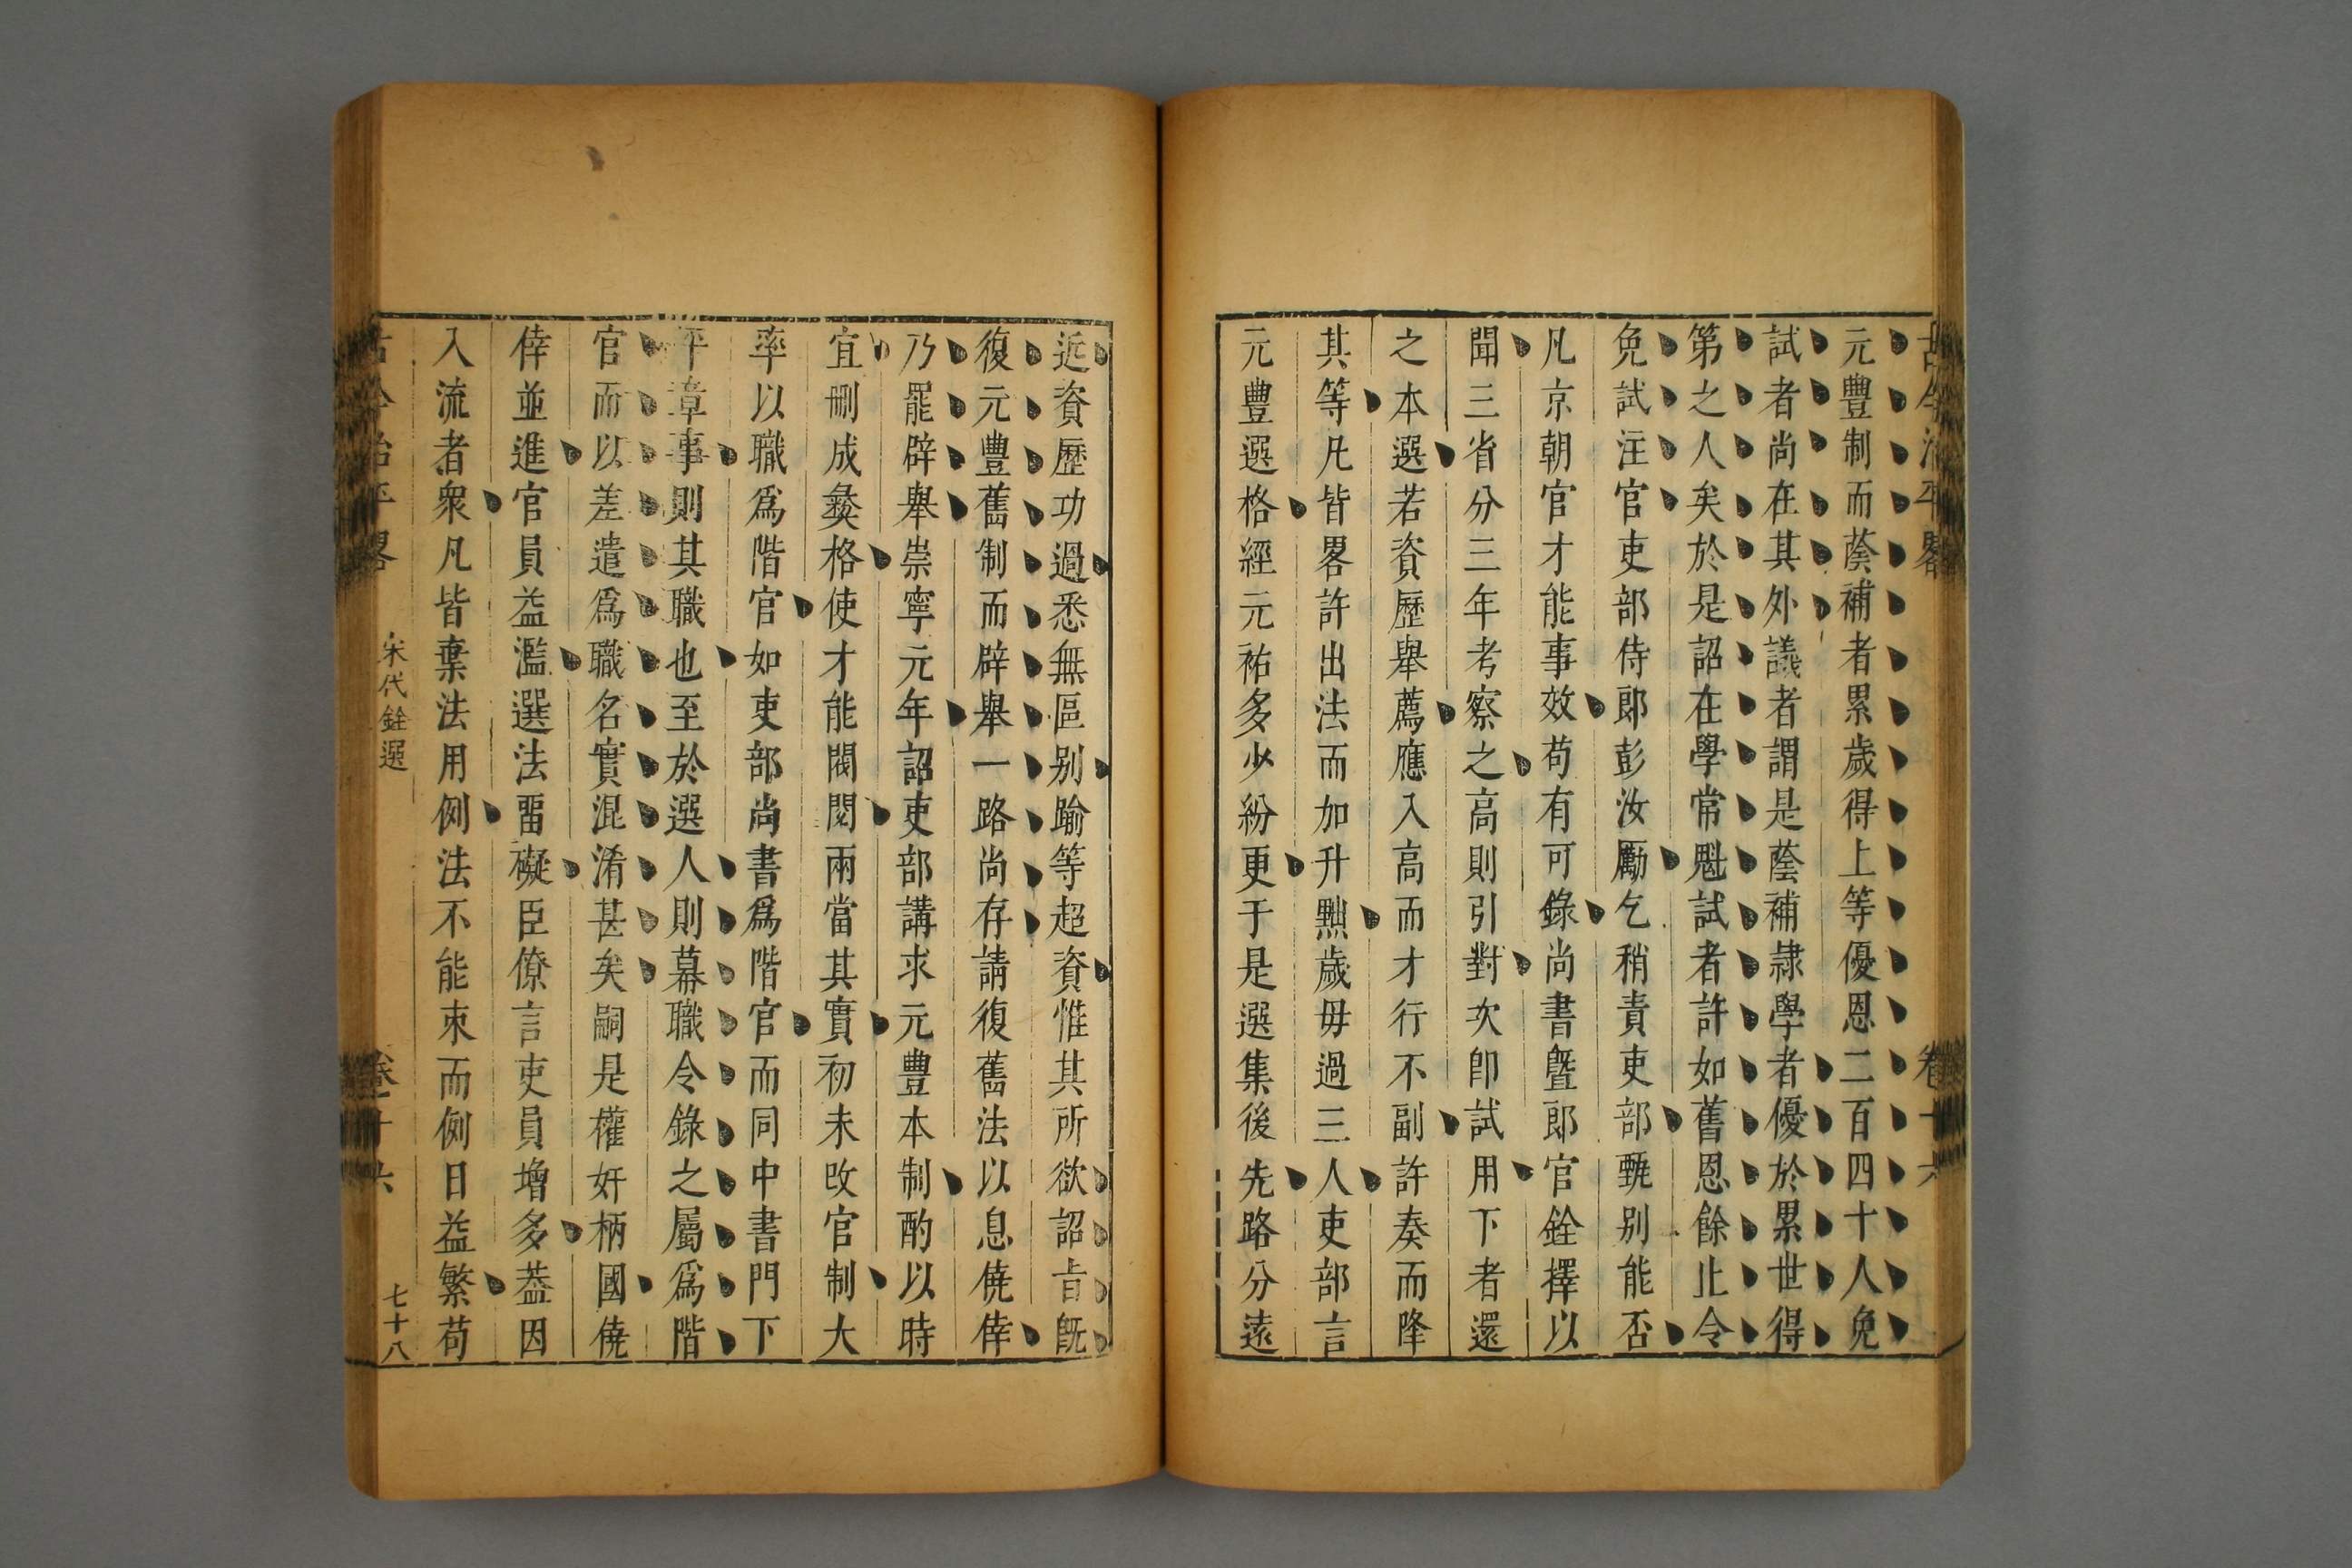 古今治平畧 卷十六
元豐制而蔭補者累歲得上等優恩二百四十人免
試者尚在其外議者謂是蔭補隷學者優於累世得
第之人矣於是詔在學常魁試者許如舊恩餘止令
免試注官吏部侍郎彭汝勵乞稍責吏部甄别能否
凡京朝官才能事效苟有可錄尚書曁郎官銓擇以
聞三省分三年考察之高則引對次卽試用下者還
之本選若資歷舉薦應入高而才行不副許奏而降
其等凡皆畧許出法而加升黜歲毋過三人吏部言
元豐選格經元祐多少紛更于是選集後先路分遠
近資歷功過悉無區别踰等超資惟其所欲詔旨旣
復元豐舊制而辟舉一路尚存請復舊法以息僥倖
乃罷辟舉崇寧元年詔吏部講求元豐本制酌以時
宜刪成彜格使才能閥閱兩當其實初未改官制大
率以職爲階官如吏部尚書爲階官而同中書門下
平章事則其職也至於選人則幕職令錄之屬爲階
官而以差遣爲職名實混淆甚矣嗣是權奸柄國僥
倖並進官員益濫選法畱礙臣僚言吏員增多葢因
入流者衆凡皆棄法用例法不能束而例日益繁苟
古今治平畧 宋代銓選 卷十六 七十八